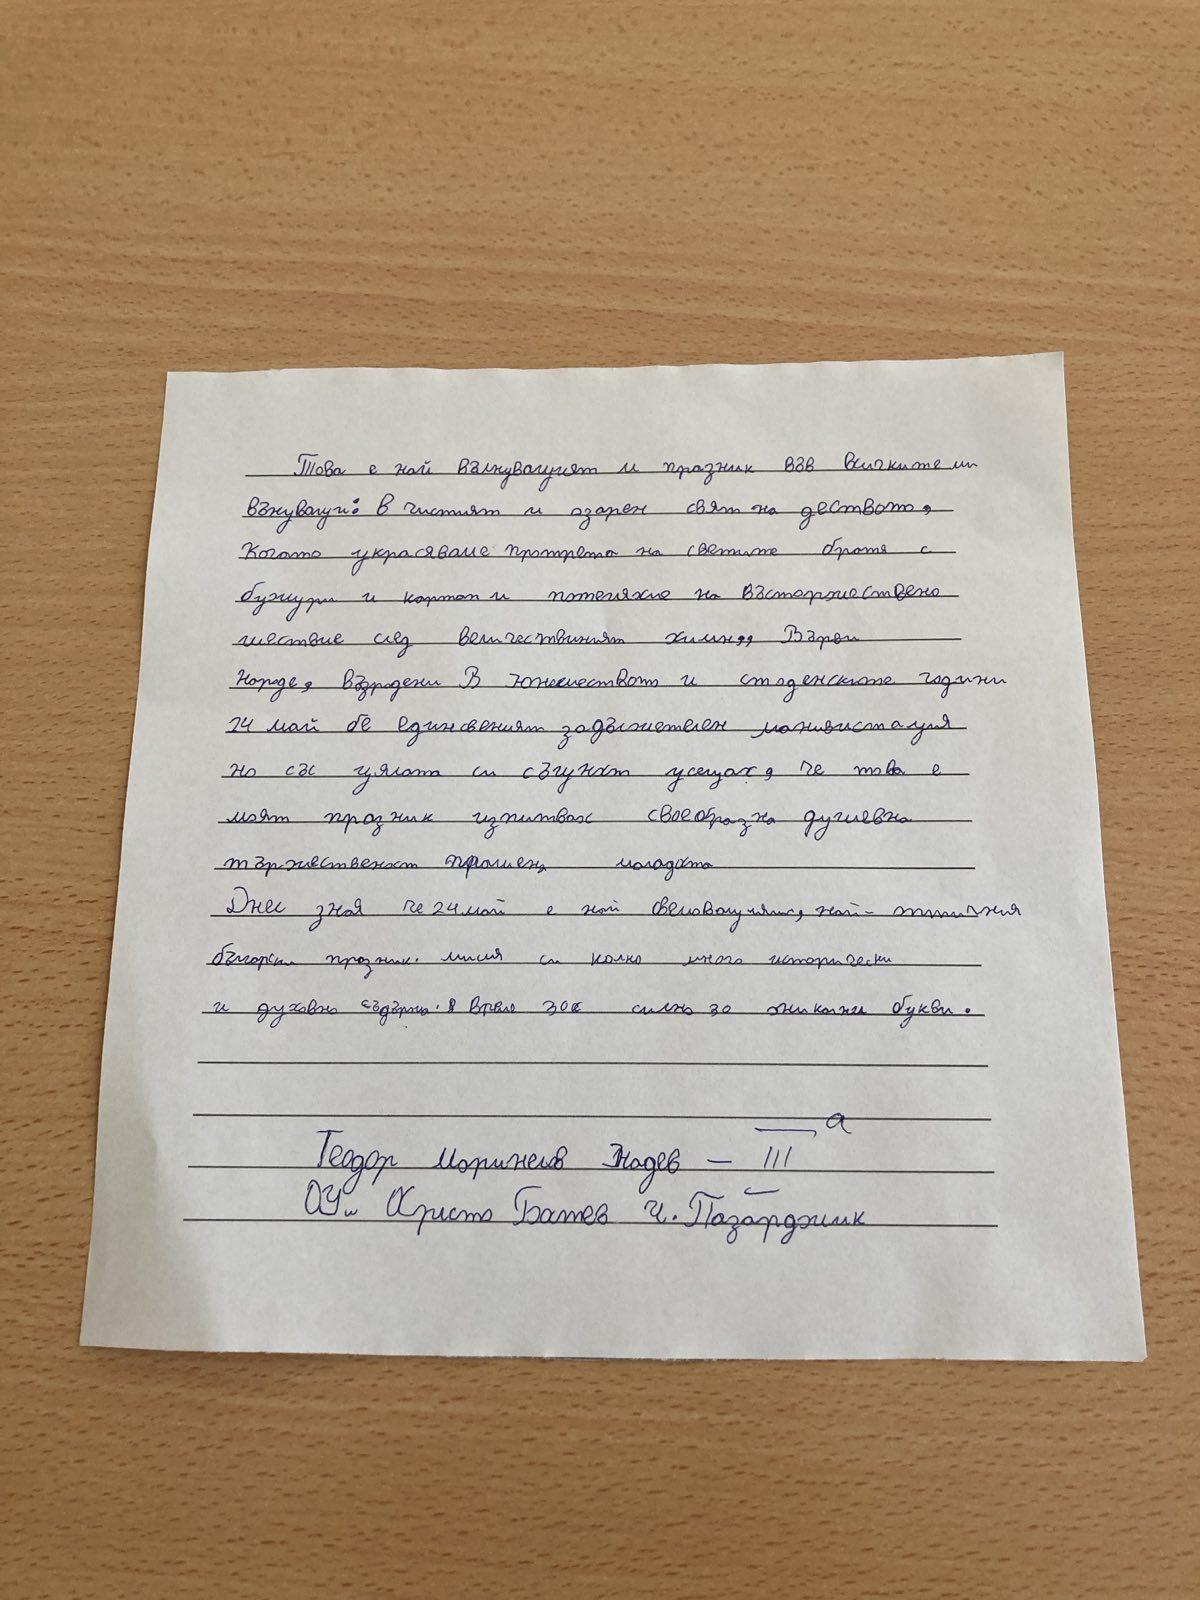 Това е най вълнуващият ми празник във всичките ми
вълнуващи: в чистият и озарен свят на деството,
Когато украсяваме протрета на светите братя с
бужури и картоп и потегляхме на възторжествено
шествие след величествиният химн,, Върви
народе, възродени В юношеството и стоденските години
24 май бе единсвеният задължетелен манивистация
но със цялата си същност усещах, че това е
моят празник изпитвах своеобразна душевна
тържественост младостта
Днес зная че 24 май е най
български празник. мисля си колко много исторически
и духовно силно за някакви букви.
Теодор Маринов Надев – III а
ОУ„ Христо Ботев г. Пазарджик